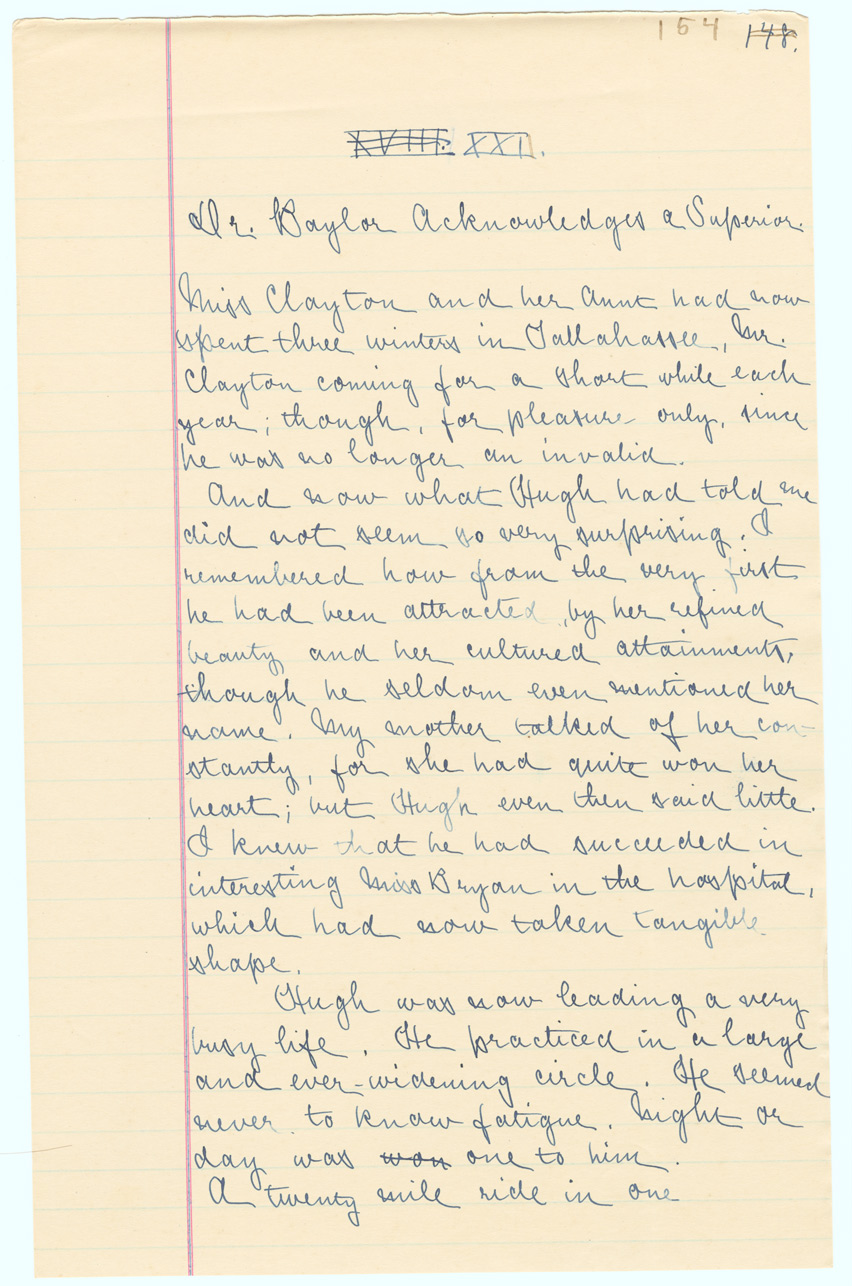 154 148.
XVIII. XXI.
Dr. Baylor Acknowledges a Superior.
Miss Clayton and her Aunt had now
spent three winters in Tallahassee, Mr.
Clayton coming for a short while each
year; though, for pleasure only, since
he was no longer an invalid.
And now what Hugh had told me
did not seem so very surprising. I
remembered how from the very first
he had been attracted, by her refined
beauty and her cultured attainments,
though he seldom even mentioned her
name. My mother talked of her con-
stantly, for she had quite won her
heart; but Hugh even then said little.
I knew that he had succeeded in
interesting Miss Bryan in the hospital,
which had now taken tangible
shape.
Hugh was now leading a very
busy life. He practiced in a large
and ever-widening circle. He seemed
never to know fatigue. Night or
day was won one to him.
A twenty mile ride in one